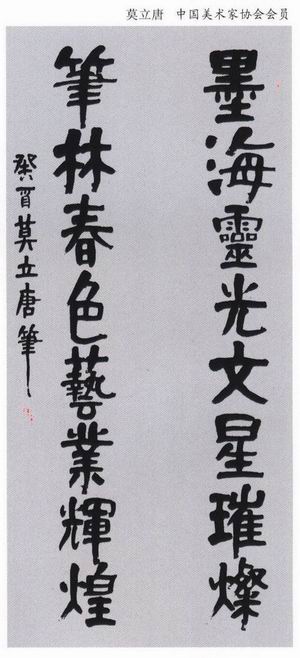 莫立唐　中国美术家协会会员
墨海靈光文星璀燦
筆林春色藝業輝煌
癸酉莫立唐筆